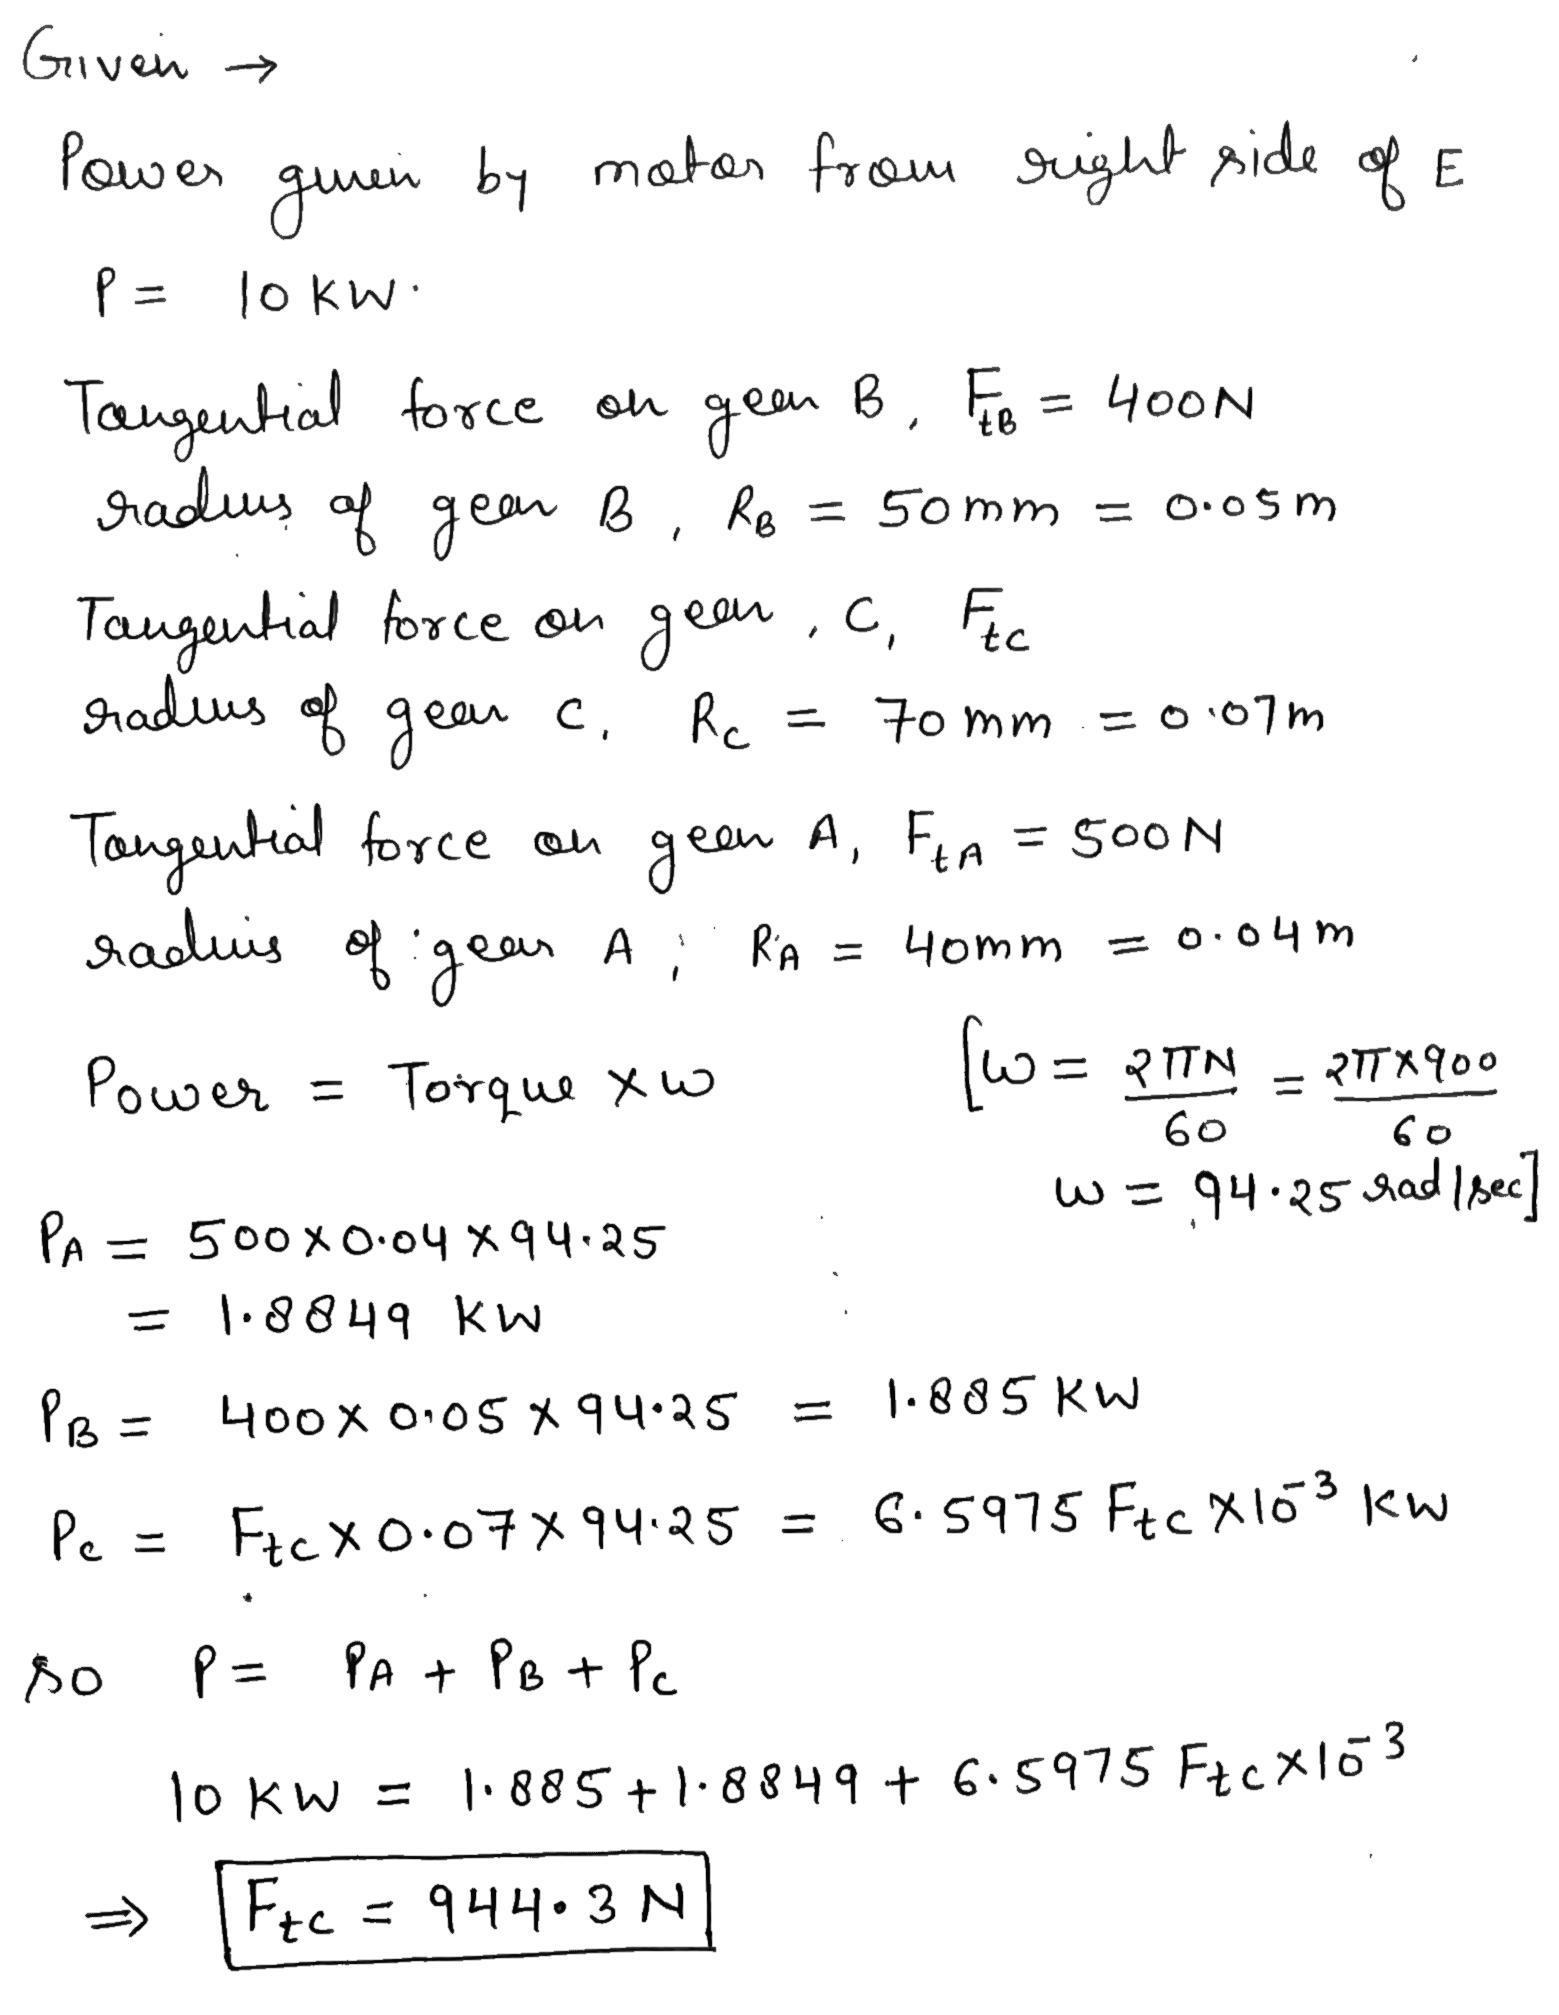 Given →
Power given by motor from right side of E
P = 10 KW.
Tangential force on gear B, FtB = 400N
radius of gear B, RB = 50mm = 0.05m
Tangential force on gear, C, Ftc
radius of gear C, Rc = 70mm = 0.07m
Tangential force on gear A, FtA = 500N
radius of gear A, RA = 40mm = 0.04m
Power = Torque × ω [ω = 2πN/60 = 2π×900/60
ω = 94.25 rad/sec]
PA = 500×0.04×94.25
= 1.8849 KW
PB = 400×0.05×94.25 = 1.885 KW
Pc = Ftc×0.07×94.25 = 6.5975 Ftc×10⁻³ KW
so P = PA + PB + Pc
10 KW = 1.885+1.8849 + 6.5975 Ftc×10⁻³
⇒ Ftc = 944.3 N